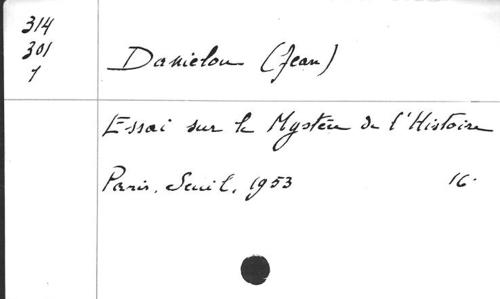 314
301
7
Danielou (Jean)
Essai sur le Mystère de l'Histoire
Paris, Seuil, 1953 16°